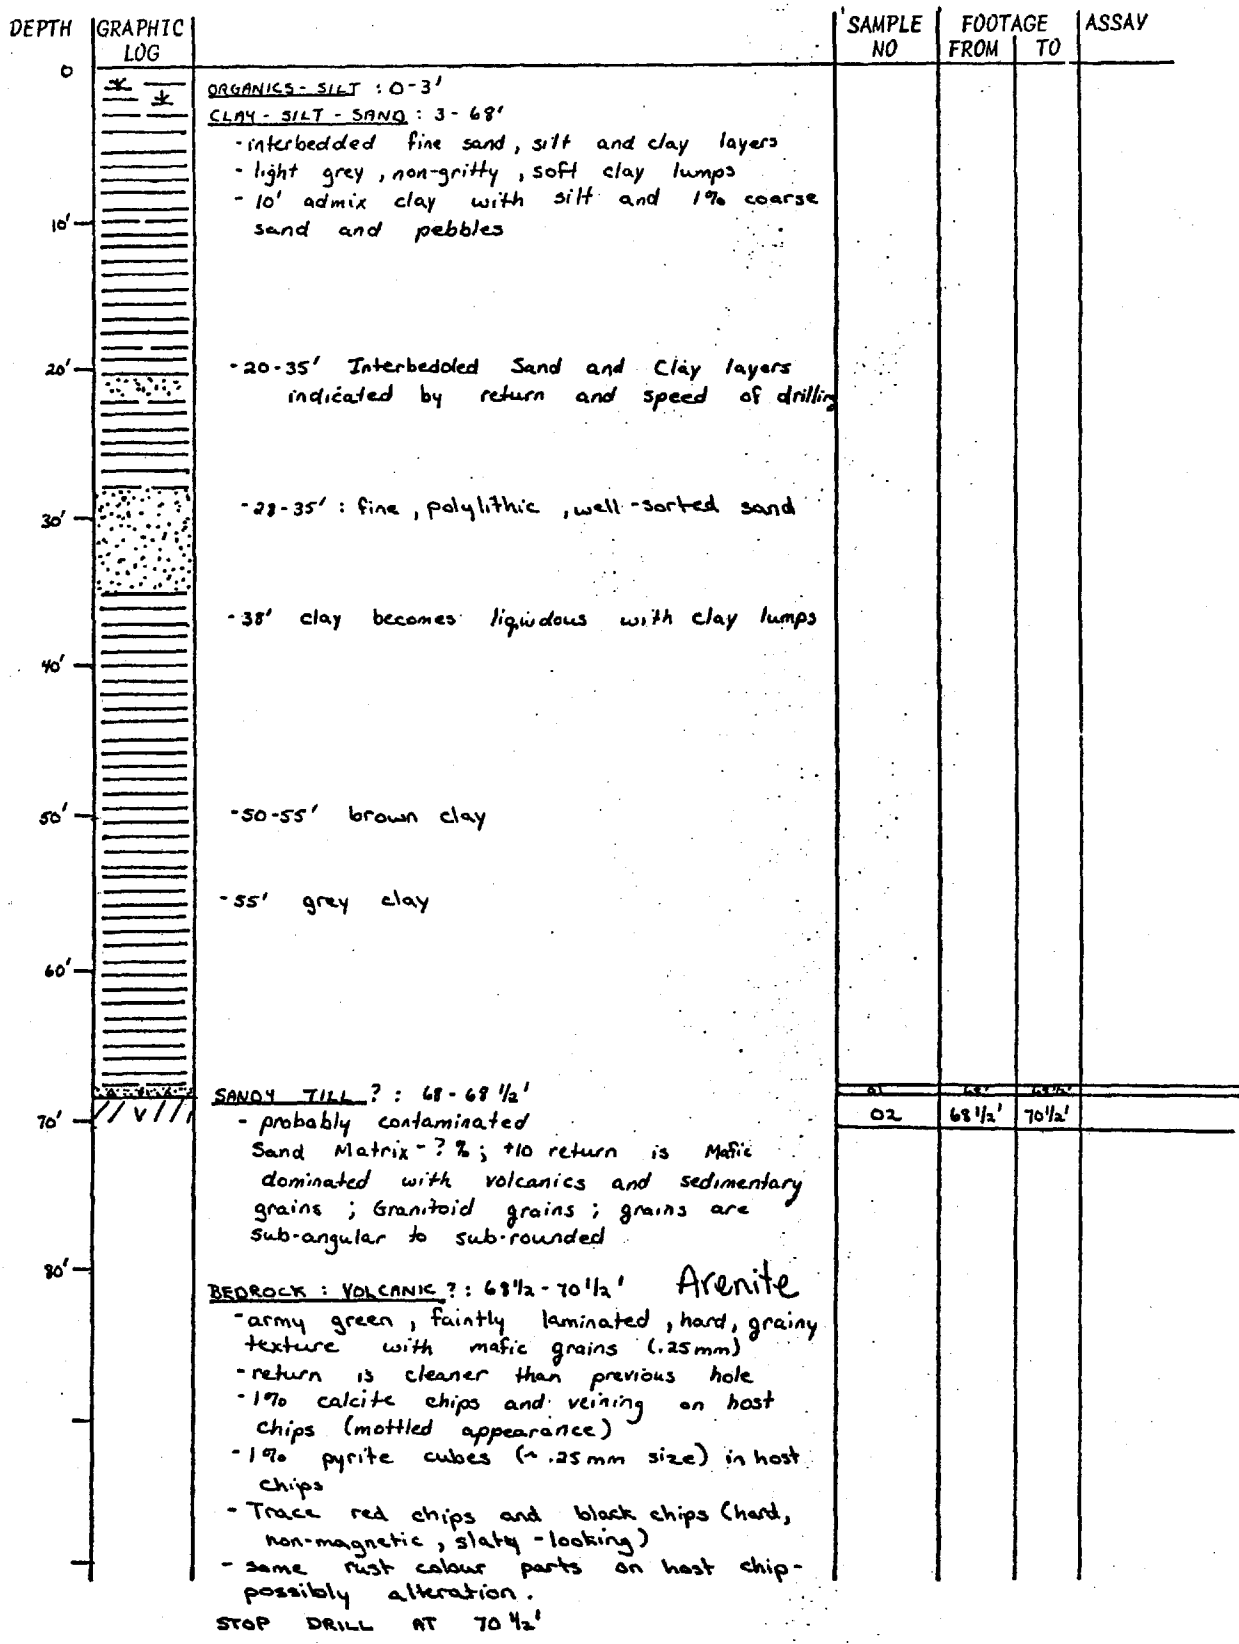 DEPTH GRAPHIC LOG SAMPLE NO FOOTAGE FROM TO ASSAY
0
ORGANICS - SILT : 0-3'
CLAY - SILT - SAND : 3 - 68'
- interbedded fine sand, silt and clay layers
- light grey, non-gritty, soft clay lumps
- 10' admix clay with silt and 1% coarse
10'
sand and pebbles
20'
- 20-35' Interbedded Sand and Clay layers
indicated by return and speed of drilling
30'
- 28-35' : fine, polylithic, well-sorted sand
- 38' clay becomes liquidous with clay lumps
40'
50'
- 50-55' brown clay
- 55' grey clay
60'
SANDY TILL ? : 68 - 68 1/2' 01 68' 68 1/2'
70'
V
02 68 1/2' 70 1/2'
- probably contaminated
Sand Matrix - ? % ; +10 return is Mafic
dominated with volcanics and sedimentary
grains ; Granitoid grains ; grains are
sub-angular to sub-rounded
80'
BEDROCK : VOLCANIC ? : 68 1/2 - 70 1/2' Arenite
- army green, faintly laminated, hard, grainy
texture with mafic grains (.25mm)
- return is cleaner than previous hole
- 1% calcite chips and veining on host
chips (mottled appearance)
- 1% pyrite cubes (~ .25mm size) in host
chips
- Trace red chips and black chips (hard,
non-magnetic, slaty-looking)
- some rust colour parts on host chip -
possibly alteration.
STOP DRILL AT 70 1/2'